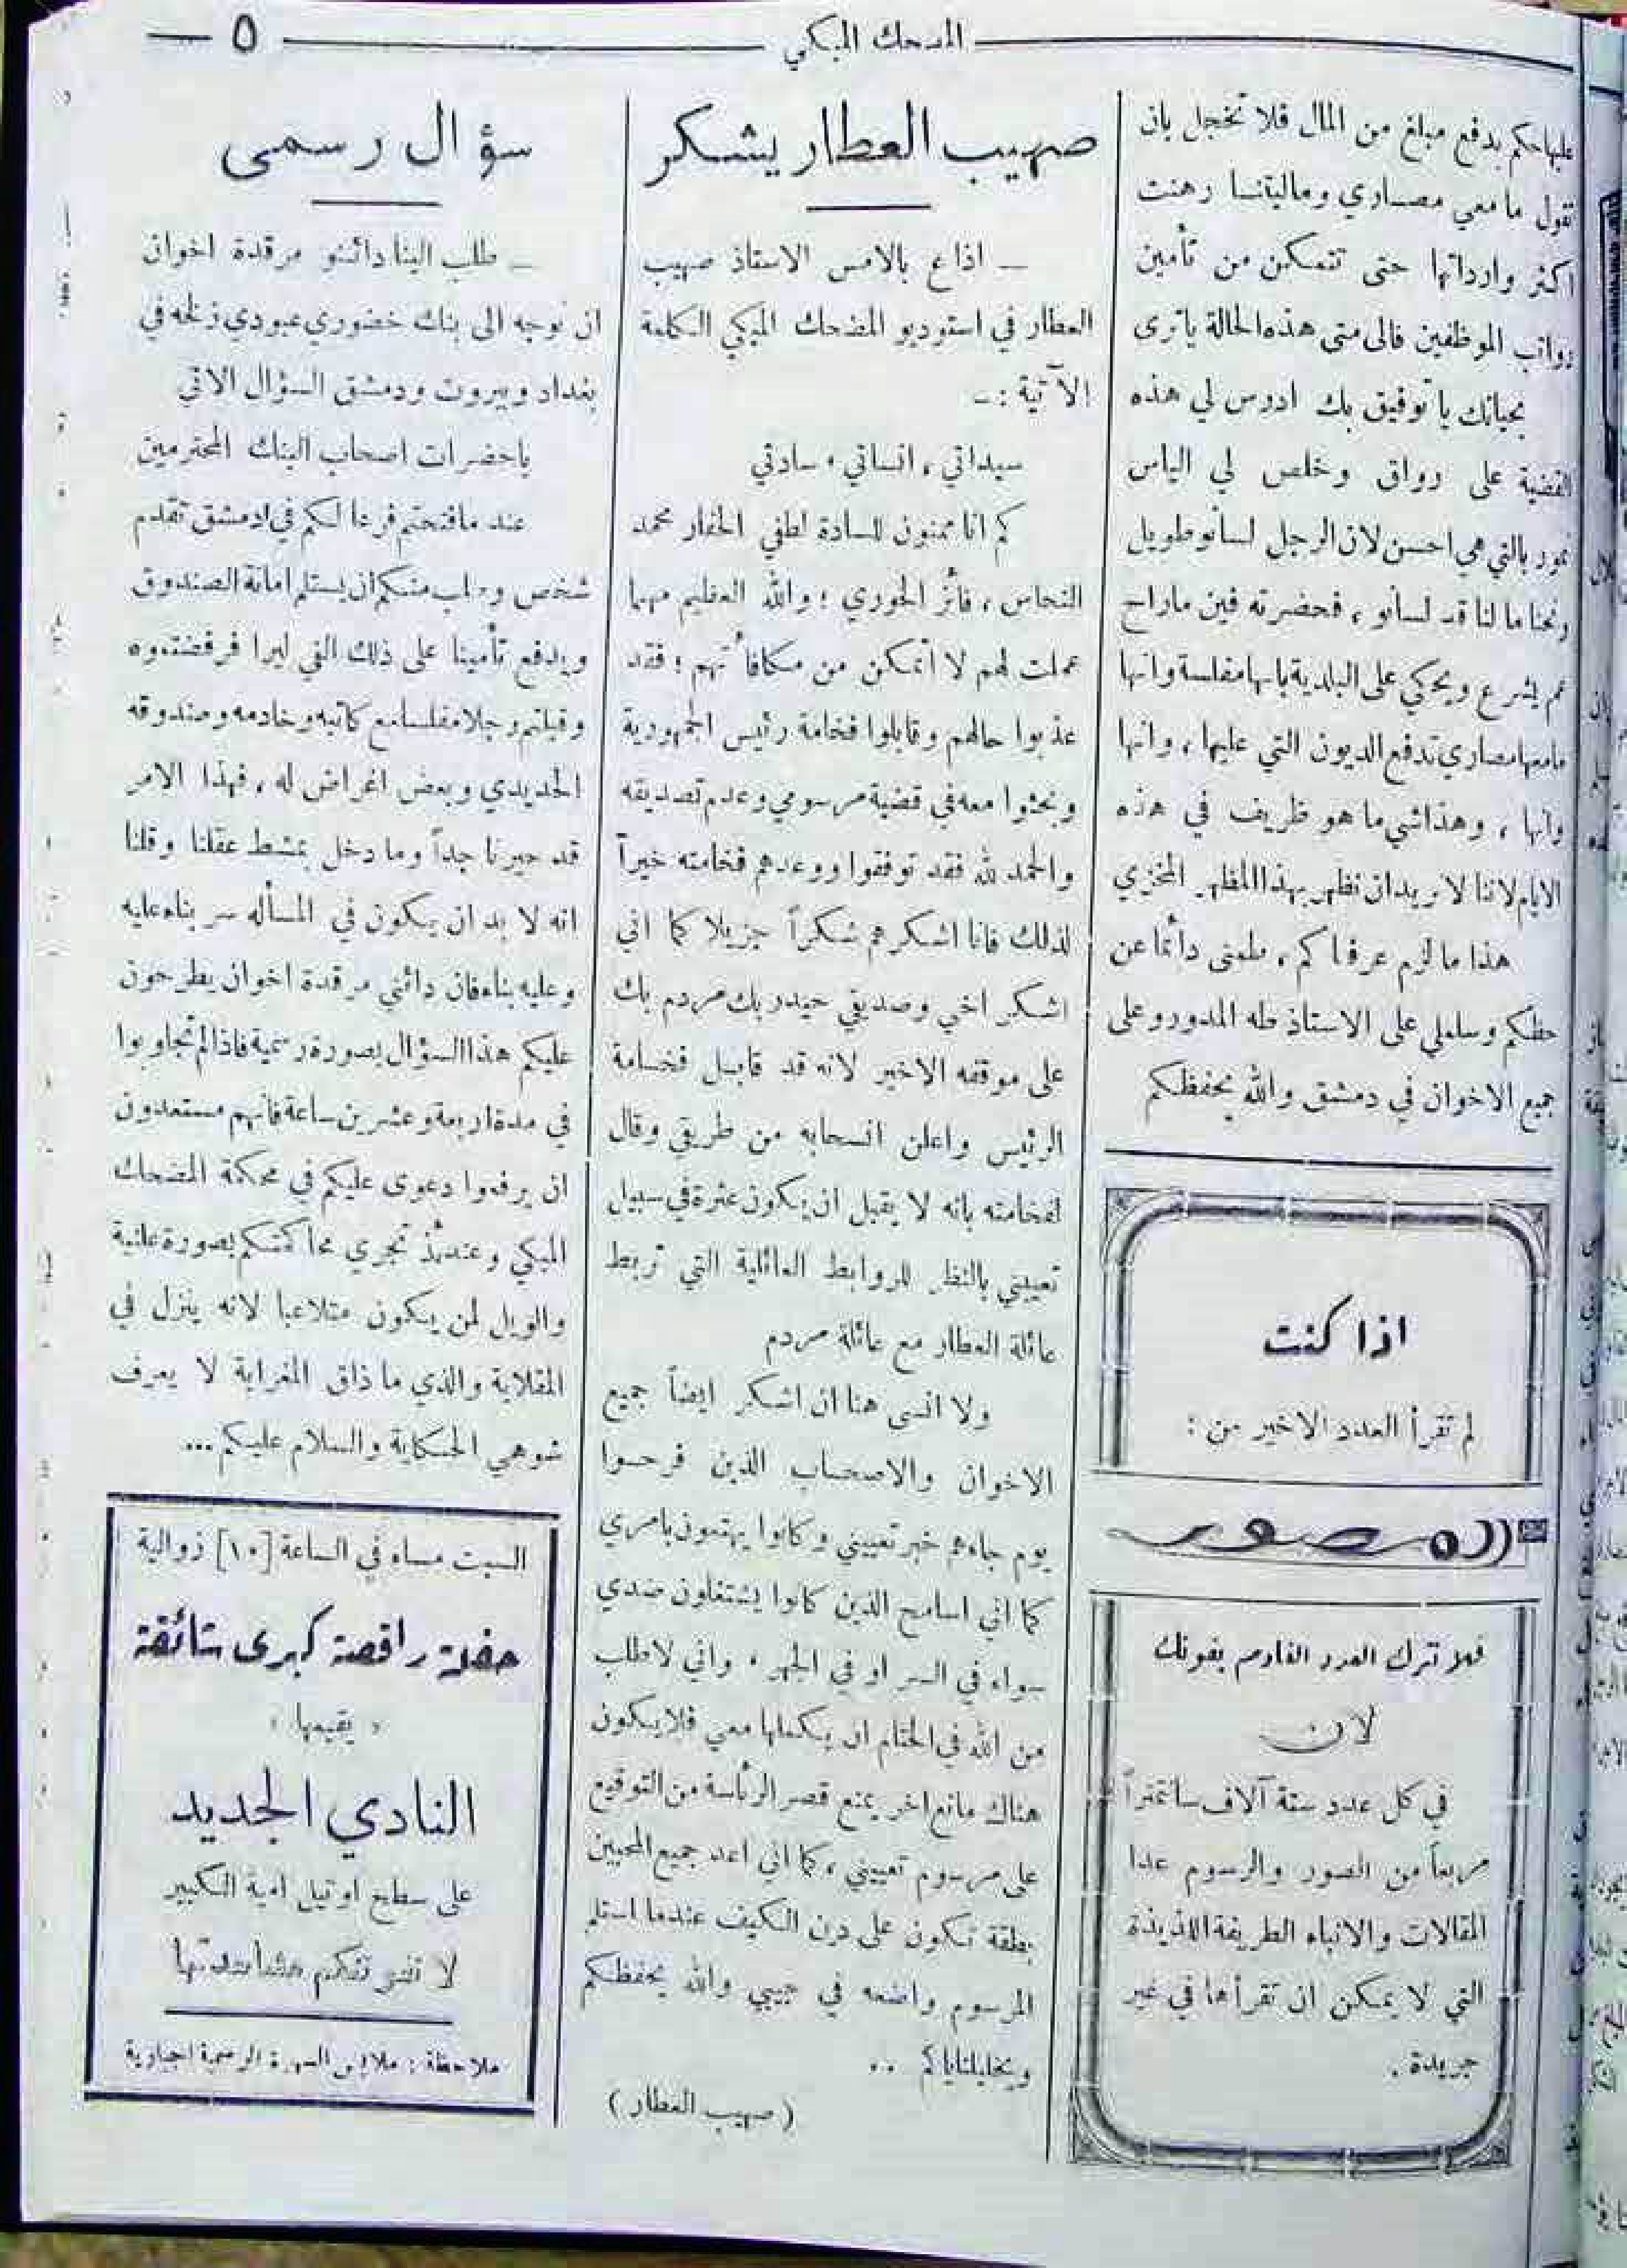 المضحك المبكي
٥
عليها حكم بدفع مبلغ من المال فلا تخجل بان
تقول ما معي مصاري وماليتنا رهنت
اكثر وارداتها حتى تتمكن من تأمين
رواتب الموظفين فالى متى هذه الحالة ياترى
بحياتك يا توفيق بك ادرس لي هذه
القضية على رواق وخلص لي الياس
نمور بالتي هي احسن لان الرجل لسانو طويل
ونحنا ما لنا قد لسانو ، فحضرته فين ماراح
عم يشرع ويحكي على البلدية بانها مفلسة وانها
مامعها مصاري تدفع الديون التي عليها ، وانها
وانها ، وهذا شي ما هو ظريف في هذه
الايام لاننا لا نريد ان نظهر بهذا المظهر المخزي
هذا ما لزم عرفنا كم ، طمني دائما عن
حظكم وسلملي على الاستاذ طه المدور وعلى
جميع الاخوان في دمشق والله يحفظكم
اذا كنت
لم تقرأ العدد الاخير من :
المصور
فلا تترك العدد القادم يفوتك
لان
في كل عدد ستة آلاف سانتمتراً
مربعاً من الصور والرسوم عدا
المقالات والانباء الطريفة اللذيذة
التي لا يمكن ان تقرأها في غير
جريدة .
صهيب العطار يشكر
ــ اذاع بالامس الاستاذ صهيب
العطار في استوديو المضحك المبكي الكلمة
الآتية :ــ
سيداتي ، انساتي ، سادتي
كم انا ممنون للسادة لطفي الحفار محمد
النحاس ، فائز الخوري ؛ والله العظيم مهما
عملت لهم لا أتمكن من مكافأتهم ؛ فقد
عذبوا حالهم وقابلوا فخامة رئيس الجمهورية
وبحثوا معه في قضية مرسومي وعدم تصديقه
والحمد لله فقد توفقوا ووعدهم فخامته خيراً
لذلك فانا اشكرهم شكراً جزيلا كما اني
اشكر اخي وصديقي حيدر بك مردم بك
على موقفه الاخير لانه قد قابل فخامة
الرئيس واعلن انسحابه من طريقي وقال
لفخامته بانه لا يقبل ان يكون عثرة في سبيل
تعييني بالنظر للروابط العائلية التي تربط
عائلة العطار مع عائلة مردم
ولا انسى هنا ان اشكر ايضاً جميع
الاخوان والاصحاب الذين فرحوا
يوم جاءهم خبر تعييني وكانوا يهتمون بامري
كما اني اسامح الذين كانوا يشتغلون ضدي
سواء في السر او في الجهر ، واني لاطلب
من الله في الختام ان يكملها معي فلا يكون
هناك مانع اخر يمنع قصر الرئاسة من التوقيع
على مرسوم تعييني ، كما اني اعد جميع المحبين
بطقة تكون على درن الكيف عندما استلم
المرسوم واضعه في جيبي والله يحفظكم
ويخليلناياكم ..
( صهيب العطار )
سؤال رسمي
ــ طلب الينا دائنو مرقدة اخوان
ان نوجه الى بنك خضوري عبودي زلخه في
بغداد وبيروت ودمشق السؤال الاتي
ياحضرات اصحاب البنك المحترمين
عند ما فتحتم فرعا لكم في دمشق تقدم
شخص وطلب منكم ان يستلم امانة الصندوق
ويدفع تأمينا على ذلك الفي ليرا فرفضتموه
وقبلتم رجلا مفلسا مع كاتبه وخادمه وصندوقه
الحديدي وبعض اغراض له ، فهذا الامر
قد حيرنا جداً وما دخل بمشط عقلنا وقلنا
انه لا بد ان يكون في المسأله سر بناء عليه
وعليه بناء فان دائني مرقدة اخوان يطرحون
عليكم هذا السؤال بصورة رسمية فاذا لم تجاوبوا
في مدة اربعة وعشرين ساعة فانهم مستعدون
ان يرفعوا دعوى عليكم في محكمة المضحك
المبكي وعندئذ تجري محاكمتكم بصورة علنية
والويل لمن يكون متلاعبا لانه ينزل في
المقلاية والذي ما ذاق المغراية لا يعرف
شو هي الحكاية والسلام عليكم ...
السبت مساء في الساعة [١٠] زوالية
حفلة راقصة كبرى شائقة
« يقيمها »
النادي الجديد
على سطح اوتيل امية الكبير
لا تنسى
ملاحظة : ملابس السهرة الرسمية اجبارية